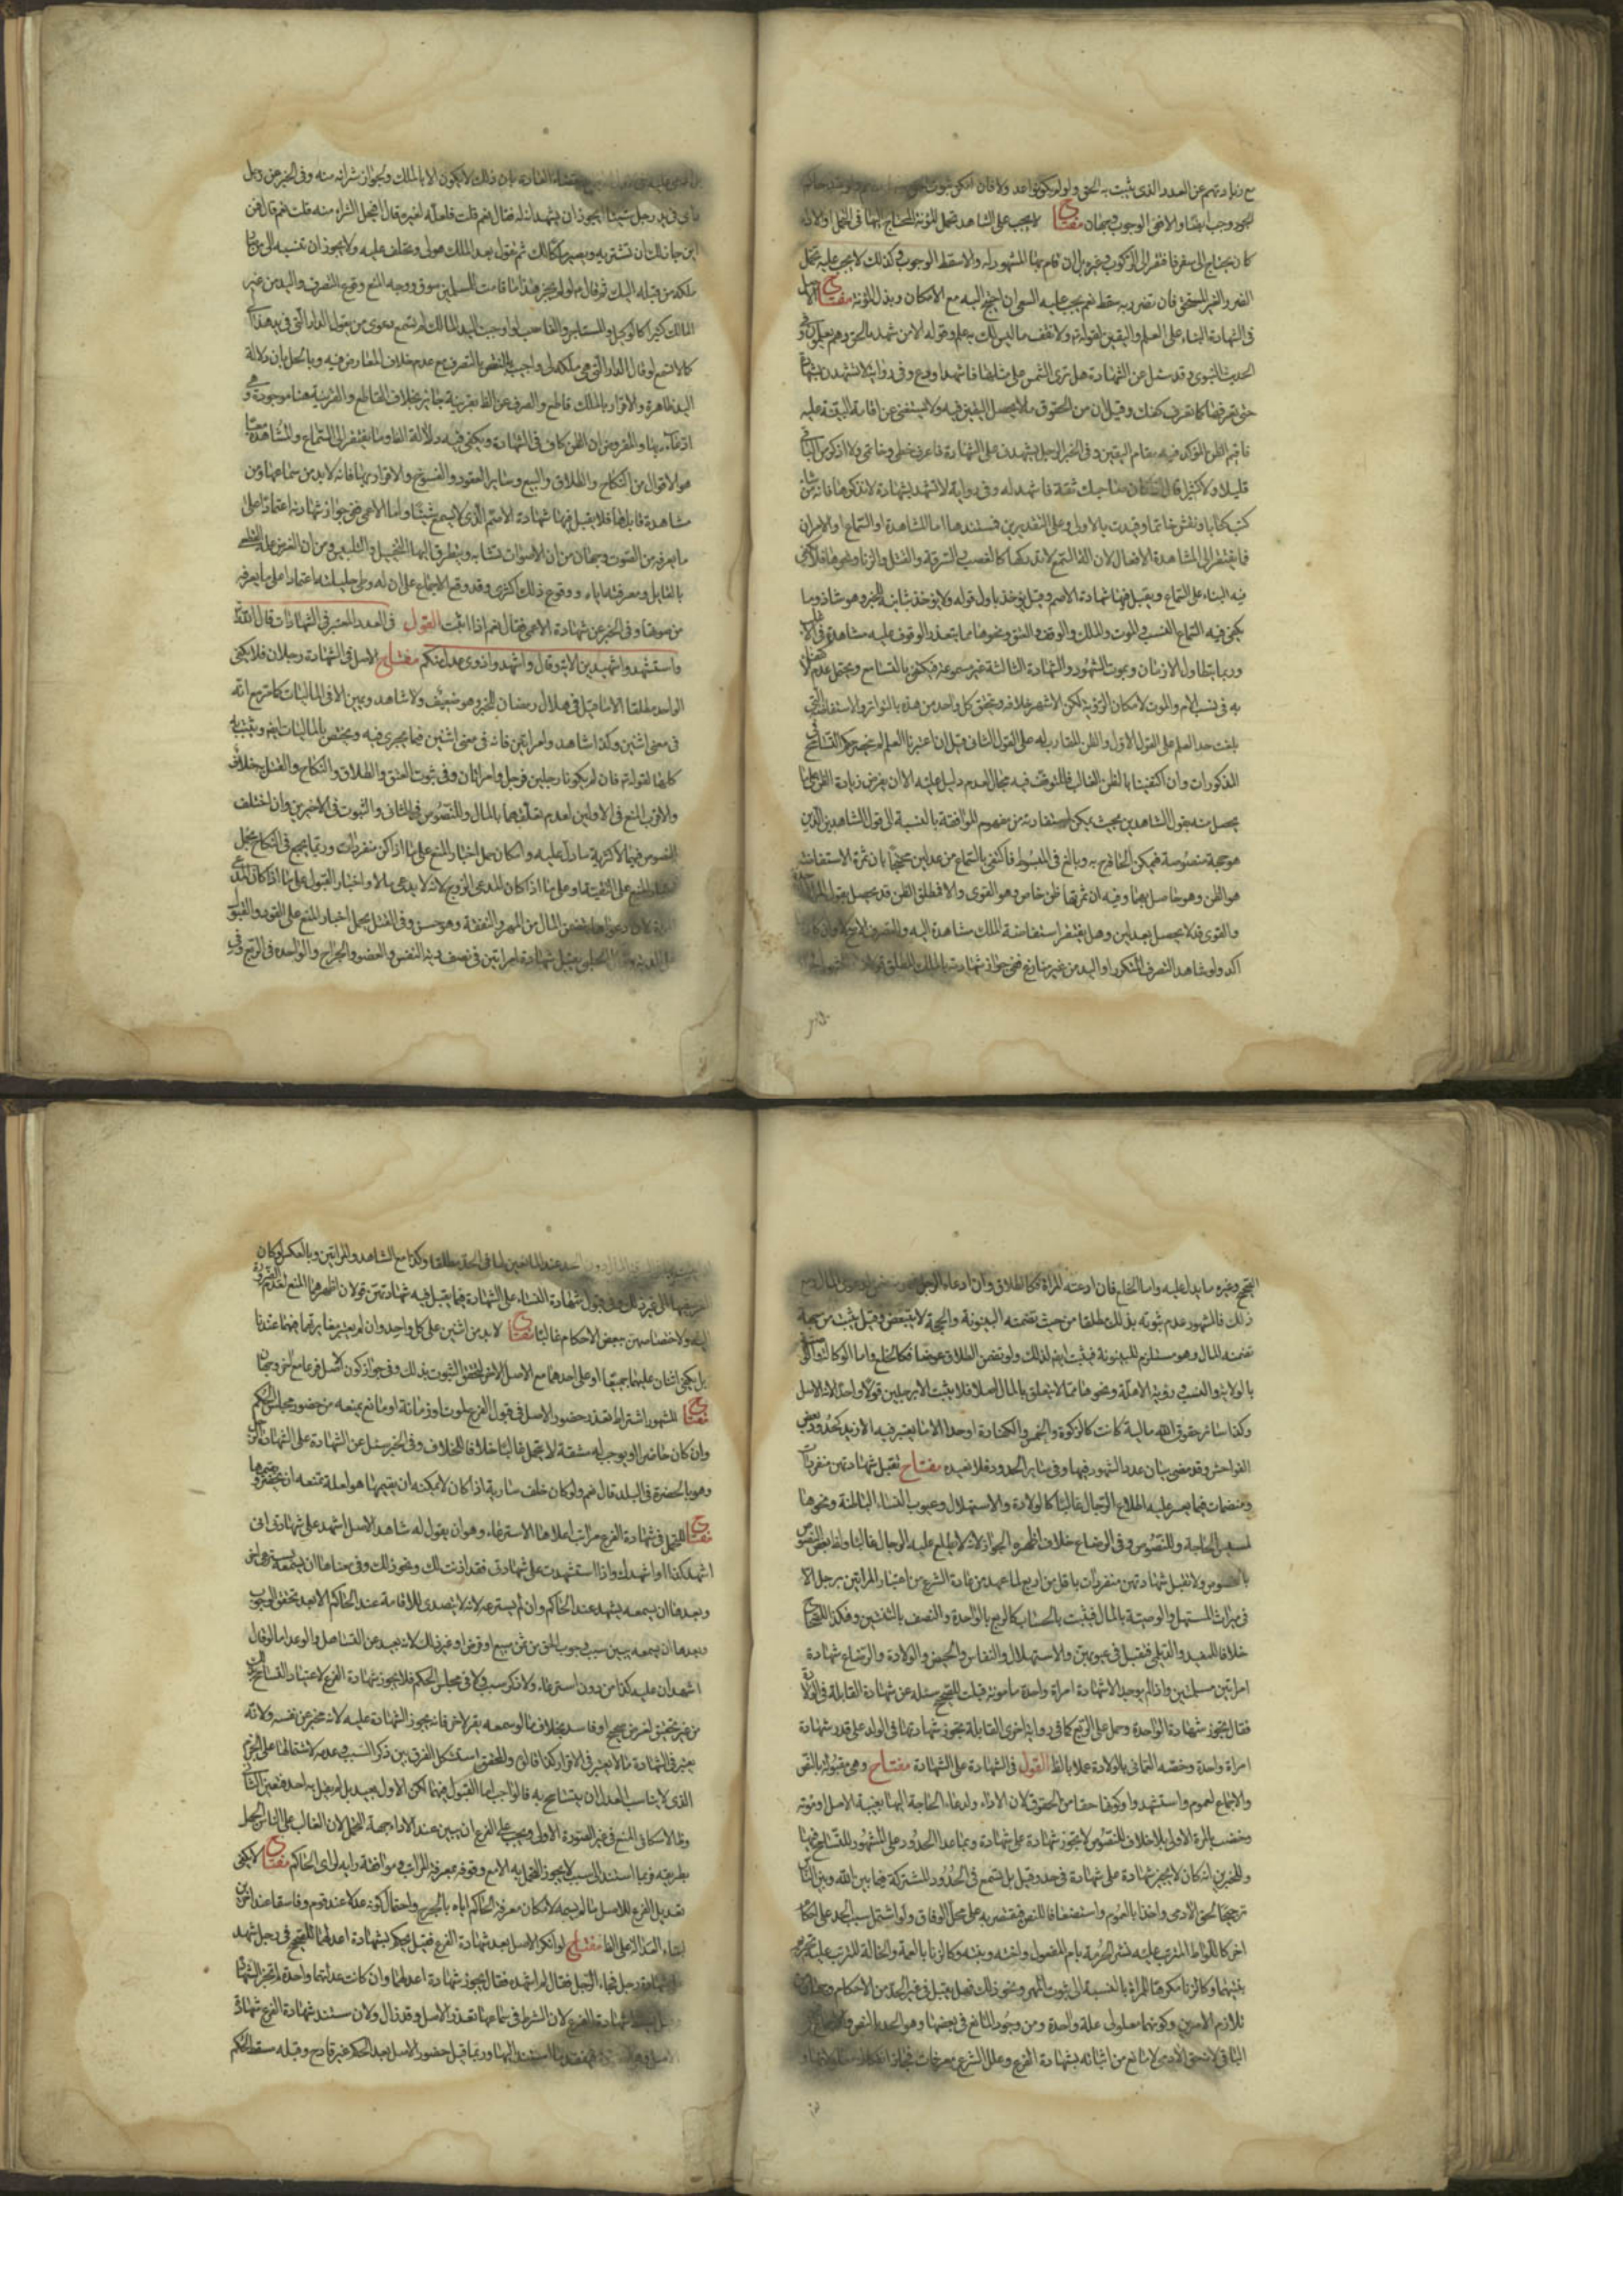 مع زيادتهم عن العدد الذي يثبت به الحق ولو لم يكن واحد والا فان امكن ثبوت
وجب ايضا والا ففي الوجوب وجهان مفتاح لا يجب على الشاهد تحمل المؤنة المحتاج اليها في التحمل او الاداء
كان يحتاج الى سفر فافتقر الى الركوب وغيره بل ان قام بها المشهود له والا سقط الوجوب وكذلك لا يجب عليه تحمل
الضرر الغير المستحق فان تضرر به سقط نعم يجب عليه السعي ان احتيج اليه مع الامكان وبذل المؤنة مفتاح الاصل
في الشهادة البناء على العلم واليقين لقوله تع ولا تقف ما ليس لك به علم وقوله الا من شهد بالحق وهم يعلمون وفي
الحديث النبوي وقد سئل عن الشهادة هل ترى الشمس على مثلها فاشهد او دع وفي رواية لا تشهدن بشهادة
حتى تعرفها كما تعرف كفك وقيل ان من الحقوق ما لا يحصل اليقين فيه ولا يستغنى عن اقامة البينة عليه
فاقيم الظن المؤكد فيه مقام اليقين وفي الخبر الرجل يشهدني على الشهادة فاعرف خطي وخاتمي ولا اذكر من الباقي
قليلا ولا كثيرا قال اذا كان صاحبك ثقة فاشهد له وفي رواية لا تشهد بشهادة لا تذكرها فانه من شاء
كتب كتابا ونقش خاتما وقيدت بالاولى وعلى التقديرين فمستندها اما المشاهدة او السماع او الامران
فما يفتقر الى المشاهدة الافعال لان الة السمع لا تدركها كالغصب والسرقة والقتل والزنا ونحوها فلا يكفي
فيه البناء على السماع ويقبل فيها شهادة الاصم وقيل يؤخذ باول قوله ولا يؤخذ بثانيه للخبر وهو شاذ وما
يكفي فيه السماع النسب والموت والملك والوقف والعتق ونحوها مما يتعذر الوقوف عليه مشاهدة في الاغلب
وربما يتطاول الازمان ويموت الشهود والشهادة الثالثة غير مسموعة فيكتفى بالتسامع ويحتمل عدم الاكتفاء
به في نسب الام والموت لامكان الرؤية لكن الاشهر خلافه ويتحقق كل واحد من هذه بالتواتر والاستفاضة التي
بلغت حد العلم على القول الاول والظن المتقارب له على القول الثاني
المذكورات وان اكتفينا بالظن الغالب فللتوقف فيه مجال لعدم دليل عليه الا ان يفرض زيادة الظن على ما
يحصل منه بقول الشاهدين بحيث يمكن استفادته من مفهوم الموافقة بالنسبة الى قول الشاهدين الذين
هو حجة منصوصة فيمكن الحاقه به وبالغ في المبسوط فاكتفى بالسماع من عدلين محتجا بان ثمرة الاستفاضة
هو الظن وهو حاصل بهما وفيه ان ثمرتها ظن خاص وهو القوي والا فمطلق الظن قد يحصل بقول
والقوي قد لا يحصل بعدلين وهل يفتقر استفاضة الملك مشاهدة اليد والتصرف الاصح لا وان كان
اكد ولو شاهد التصرف المتكرر او اليد من غير منازع ففي جواز شهادته بالملك المطلق قولان
بقضاء العادة بان ذلك لا يكون الا بالملك ولجواز شرائه منه وفي الخبر عن رجل
راى في يد رجل شيئا ايجوز ان يشهد انه له فقال نعم قلت فلعله لغيره قال ايحل الشراء منه قلت نعم قال فمن
اين جاز لك ان تشتريه ويصير ملكا لك ثم تقول بعد الملك هو لي وتحلف عليه ولا يجوز ان تنسبه الى من صار
ملكه من قبله اليك ثم قال ع ولو لم يجز هذا ما قامت للمسلمين سوق ووجه المنع وقوع التصرف واليد من غير
المالك كثيرا كالوكيل والمستاجر والغاصب ولو اوجبت اليد الملك لم تسمع دعوى من يقول الدار التي في يد هذا لي
كما لا تسمع لو قال الدار التي هي ملكه لي واجيب بالنقض بالتصرف مع عدم خلاف المعارض فيه وبالحل بان دلالة
اليد ظاهرة والاقرار بالملك قاطع والصرف عن الظ بقرينة جائز بخلاف القاطع والقرينة هنا موجودة وهي
ادعاؤه بها والمفروض ان الظن كاف في الشهادة ويكفي فيه دلالة الظ وما يفتقر الى السماع والمشاهدة معا
هو الاقوال من النكاح والطلاق والبيع وسائر العقود والفسوخ والاقرار بها فانه لا بد من سماعها ومن
مشاهدة قائلها فلا يقبل فيها شهادة الاصم الذي لا يسمع شيئا واما الاعمى ففي جواز شهادته اعتمادا على
ما يعرفه من الصوت وجهان من ان الاصوات تتشابه ويتطرق اليها التخييل والتلبيس ومن ان الفرض علمه القطعي
بالقائل ومعرفته اياه ووقوع ذلك اكثري وقد وقع الاجماع على ان له وطي حليلته اعتمادا على ما يعرفه
من صوتها وفي الخبر عن شهادة الاعمى فقال نعم اذا اثبت القول في العدد المعتبر في الشهادات قال الله
واستشهدوا شهيدين الاية وقال واشهدوا ذوي عدل منكم مفتاح الاصل في الشهادة رجلان فلا يكفي
الواحد مطلقا الا ما قيل في هلال رمضان للخبر وهو ضعيف ولا شاهد ويمين الا في الماليات كما مر مع انه
في معنى اثنين وكذا شاهد وامراتين فانه في معنى اثنين فيما يجري فيه ويختص بالماليات ايض ويثبت به
كلها لقوله تع فان لم يكونا رجلين فرجل وامراتان وفي ثبوت العتق والطلاق والنكاح والقتل بهم خلاف
والاقرب المنع في الاولين لعدم تعلقهما بالمال وللنصوص في الثاني والثبوت في الاخيرين وان اختلف
النصوص فيها لاكثرية ما دل عليه وامكان حمل اخبار المنع على ما اذا كن منفردات وربما يجمع في النكاح بحمل
اخبار المنع على التقية او على ما اذا كان المدعي الزوج لانه لا يدعي مالا واخبار القبول على ما اذا كان المدعي
المراة لان دعواها يتضمن المال من المهر والنفقة وهو حسن وفي القتل يحمل اخبار المنع على القود والقبول
على الدية الحلبي يقبل شهادة امراتين في نصف دية النفس والعضو والجراح والواحدة في الربع وفي
الصحيح وغيره ما يدل عليه واما الخلع فان ادعته المراة فكالطلاق وان ادعاه الرجل
ذلك فالمشهور عدم ثبوته بذلك مطلقا من حيث تضمنه البينونة والحجة لا يتبعض وقيل يثبت من جهة
تضمنه للمال وهو مستلزم للبينونة فيثبت ايض لذلك ولو تضمن الطلاق عوضا فكالخلع واما الوكالة
بالولاية والنسب ورؤية الاهلة ونحوها مما لا يتعلق بالمال اصلا فلا يثبت الا برجلين قولا واحدا لانه الاصل
وكذا سائر حقوق الله مالية كانت كالزكوة والخمس والكفارة او حدا الا ما يعتبر فيه الازيد كحدود بعض
الفواحش وقد مضى بيان عدد الشهود فيها وفي سائر الحدود فلا نعيده مفتاح تقبل شهادتهن منفردات
ومنضمات فيما يعسر عليه اطلاع الرجال غالبا كالولادة والاستهلال وعيوب النساء الباطنة ونحوها
لمسيس الحاجة وللنصوص وفي الرضاع خلاف اظهره الجواز لانه لا يطلع عليه الرجال غالبا
بالخصوص ولا تقبل شهادتهن منفردات باقل من اربع لما عهد من عادة الشرع من اعتبار المراتين برجل الا
في ميراث المستهل والوصية بالمال فيثبت بالحساب كالربع بالواحدة والنصف بالثنتين وهكذا للصحاح
خلافا للمفيد والديلمي فتقبل في عيوبهن والاستهلال والنفاس والحيض والولادة والرضاع شهادة
امراتين مسلمتين واذا لم يوجد الا شهادة امراة واحدة مامونة قبلت للصحيح سئله عن شهادة القابلة في الولادة
فقال يجوز شهادة الواحدة وحمل على الربع كما في رواية اخرى القابلة يجوز شهادتها في الولد على قدر شهادة
امراة واحدة وخصه العماني بالولادة عملا بالظ القول في الشهادة على الشهادة مفتاح وهي مقبولة بالنص
والاجماع لعموم واستشهدوا وكونها حقا من الحقوق لان الاداء ولدعاء الحاجة اليها بغيبة الاصل او موته
ويختص بالمرة الاولى بلا خلاف للنصوص لا يجوز شهادة على شهادة وبما عدا الحدود على المشهور للتسامح فيها
وللخبرين انه كان لا يجيز شهادة على شهادة في حد وقيل بل تسمع في الحدود المشتركة فيما بين الله وبين الناس
ترجيحا لحق الادمي واخذا بالعموم واستضعافا للنص فيقتصر به على محل الوفاق ولو اشتمل سبب الحد على احكام
اخر كاللواط المترتب عليه نشر الحرمة بام المفعول واخته وبنته وكالزنا بالعمة والخالة المترتب عليه تحريم
بنتيهما وكالزنا مكرها للمراة بالنسبة الى ثبوت المهر ونحو ذلك فهل يقبل في غير الحد من الاحكام وجهان
تلازم الامرين وكونهما معلولي علة واحدة ومن وجود المانع في بعضها وهو الحد بالنص
الباقي لانه حق الادمي لا مانع من اثباته بشهادة الفرع وعلل الشرع معرفات
المال دون الحد عند المانعين لها في الحد مطلقا وكذا مع الشاهد والمراتين وبالعكس لو كان
وفي قبول شهادة النساء على الشهادة فيما يقبل فيه شهادتهن قولان اظهرهما المنع لعدم الضرورة
اليه ولاختصاصهن ببعض الاحكام غالبا مفتاح لا بد من اثنين على كل واحد وان لم يعتبر مغايرتهما فيهما عندنا
بل يكفي اثنان عليهما جميعا او على احدهما مع الاصل الاخر لتحقق الثبوت بذلك وفي جواز كون الاصل فرعا مع اخر وجهان
مفتاح المشهور اشتراط تعذر حضور الاصل في قبول الفرع بموت او زمانة او مانع يمنعه من حضور مجلس الحكم
وان كان حاضرا او يوجب له مشقة لا يتحمل غالبا خلافا للخلاف وفي الخبر سئل عن الشهادة على الشهادة الرجل
وهو بالحضرة في البلد قال نعم ولو كان خلف سارية اذا كان لا يمكنه ان يقيمها هو لعلة تمنعه ان يحضر ويقيمها
مفتاح للتحمل في شهادة الفرع مراتب اعلاها الاسترعاء وهو ان يقول له شاهد الاصل اشهد على شهادتي انني
اشهد بكذا او اشهدك واذا استشهدت على شهادتي فقد اذنت لك ونحو ذلك وفي معناها ان يسمعه يسترعي اخر
وبعدها ان يسمعه يشهد عند الحاكم وان لم يسترعه لانه لا يتصدى للاقامة عند الحاكم الا بعد تحقق الوجوب
وبعدها ان يسمعه يبين سبب وجوب الحق من ثمن مبيع او قرض او غير ذلك لانه بعيد عن التساهل والوعد اما لو قال
اشهد ان عليه كذا من دون استرعاء ولا ذكر سبب ولا في مجلس الحكم فلا يجوز شهادة الفرع لاعتياد التسامح
من غير تحقيق لغرض صحيح او فاسد بخلاف ما لو سمعه يقر لاخر فانه يجوز الشهادة عليه لانه مخبر عن نفسه ولانه
يعتبر في الشهادة ما لا يعتبر في الاقرار كذا قالوه والمحقق استشكل الفرق بين ذكر السبب وعدمه لاشتمالها على الجزم
الذي لا يناسب العدل ان يتسامح به فالواجب اما القبول فيهما لكن الاول بعيد بل لم يقل به احد فتعين الثاني
وظ الاسكافي المنع في غير الصورة الاولى ويجب على الفرع ان يبين عند الاداء جهة التحمل لان الغالب على الناس الجهل
بطريقه فربما استند الى سبب لا يجوز التحمل به الا مع وثوقه بمعرفة المراتب وموافقة رايه لراي الحاكم مفتاح لا يكفي
تعديل الفرع للاصل ما لم يسمه لامكان معرفة الحاكم اياه بالجرح ولاحتمال كونه عدلا عند قوم وفاسقا عند اخرين
مفتاح لو انكر الاصل بعد شهادة الفرع فقيل يحكم بشهادة اعدلهما للصحيح في رجل شهد
على شهادة رجل فجاء الرجل فقال لم اشهده فقال تجوز شهادة اعدلهما وان كانت عدالتهما واحدة لم تجز الشهادة
شهادة الفرع لان الشرط في سماعها تعذر الاصل وقد زال ولان مستند شهادة الفرع شهادة
ما استند اليها وربما قيل حضور الاصل بعد الحكم غير قادح وقبله سقط الحكم